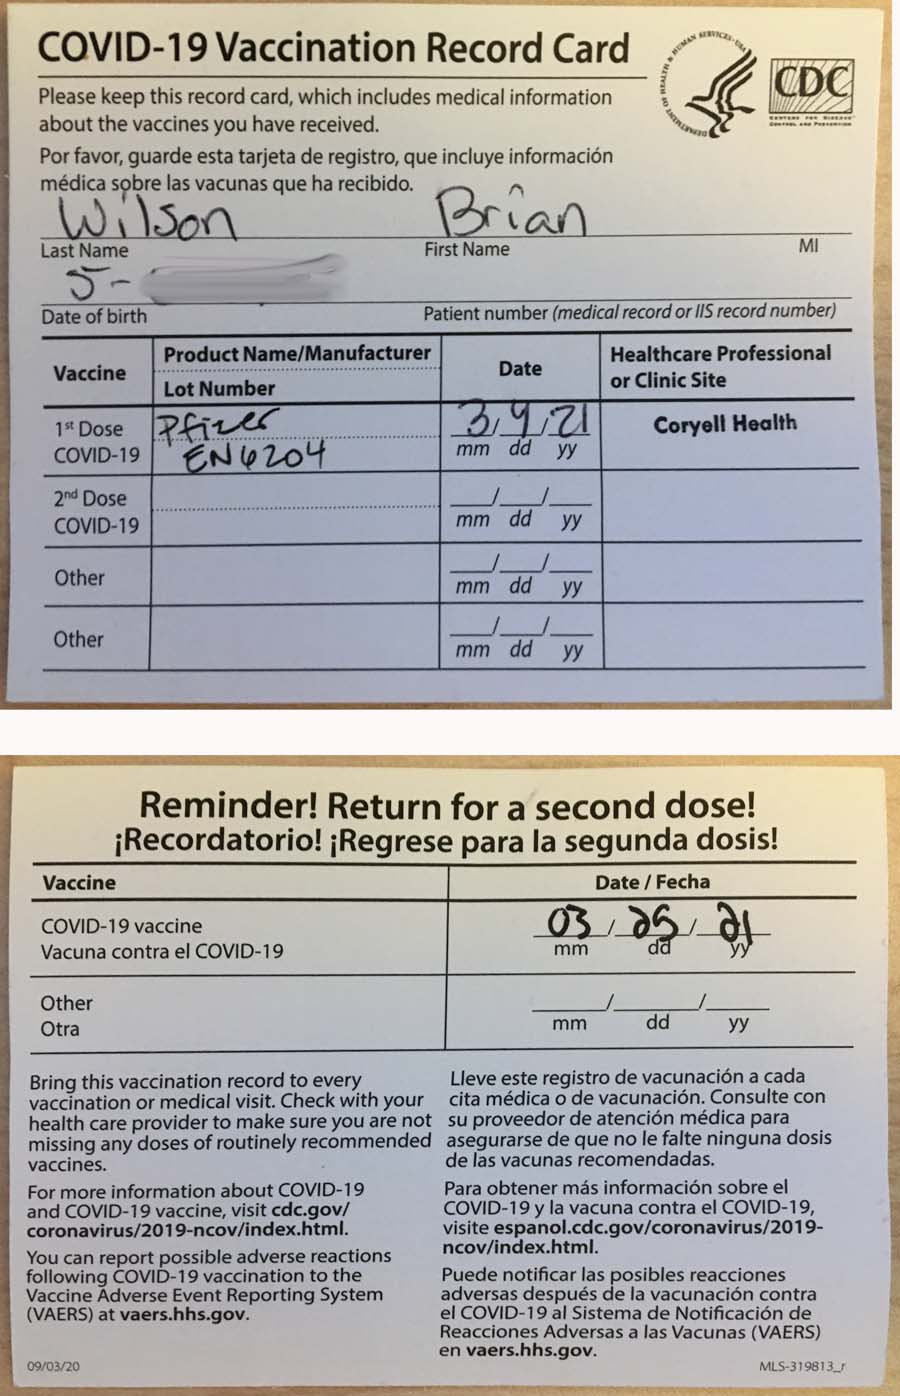 COVID-19 Vaccination Record Card
DEPARTMENT OF HEALTH & HUMAN SERVICES · USA
CDC
CENTERS FOR DISEASE CONTROL AND PREVENTION
Please keep this record card, which includes medical information
about the vaccines you have received.
Por favor, guarde esta tarjeta de registro, que incluye información
médica sobre las vacunas que ha recibido.
Wilson Brian
Last Name First Name MI
5-
Date of birth Patient number (medical record or IIS record number)
Vaccine Product Name/Manufacturer Date Healthcare Professional
Lot Number or Clinic Site
1st Dose Pfizer 3/4/21 Coryell Health
COVID-19 EN6204 mm dd yy
2nd Dose / /
COVID-19 mm dd yy
Other / /
mm dd yy
Other / /
mm dd yy
Reminder! Return for a second dose!
¡Recordatorio! ¡Regrese para la segunda dosis!
Vaccine Date / Fecha
COVID-19 vaccine 03 / 25 / 21
Vacuna contra el COVID-19 mm dd yy
Other / /
Otra mm dd yy
Bring this vaccination record to every
vaccination or medical visit. Check with your
health care provider to make sure you are not
missing any doses of routinely recommended
vaccines.
For more information about COVID-19
and COVID-19 vaccine, visit cdc.gov/
coronavirus/2019-ncov/index.html.
You can report possible adverse reactions
following COVID-19 vaccination to the
Vaccine Adverse Event Reporting System
(VAERS) at vaers.hhs.gov.
Lleve este registro de vacunación a cada
cita médica o de vacunación. Consulte con
su proveedor de atención médica para
asegurarse de que no le falte ninguna dosis
de las vacunas recomendadas.
Para obtener más información sobre el
COVID-19 y la vacuna contra el COVID-19,
visite espanol.cdc.gov/coronavirus/2019-
ncov/index.html.
Puede notificar las posibles reacciones
adversas después de la vacunación contra
el COVID-19 al Sistema de Notificación de
Reacciones Adversas a las Vacunas (VAERS)
en vaers.hhs.gov.
09/03/20 MLS-319813_r